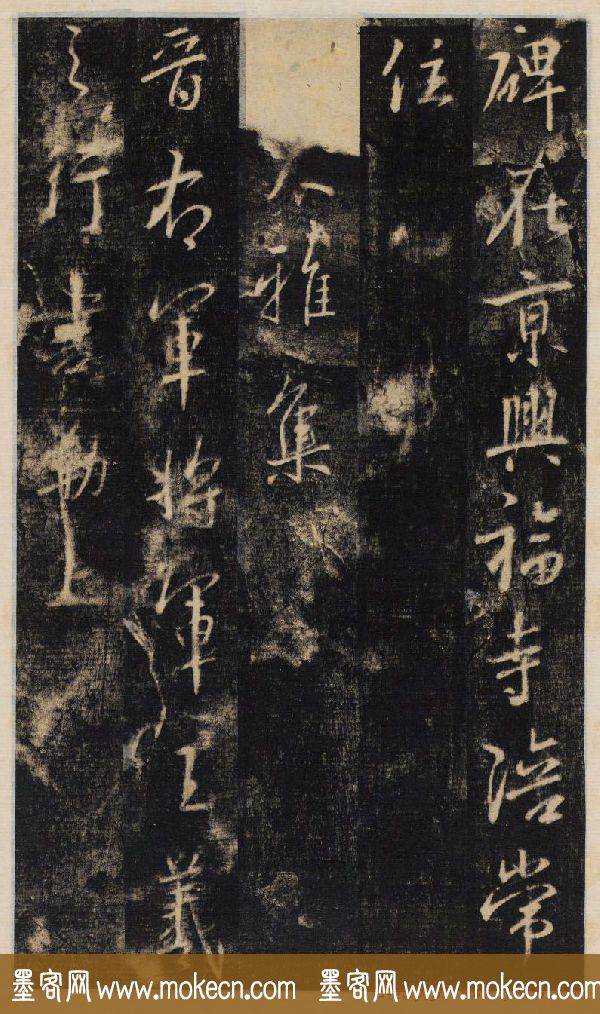 碑在京興福寺陪常
住
大雅集
晋右軍將軍王羲
之行書勒上
墨客网 www.mokecn.com 墨客网 www.mokecn.com